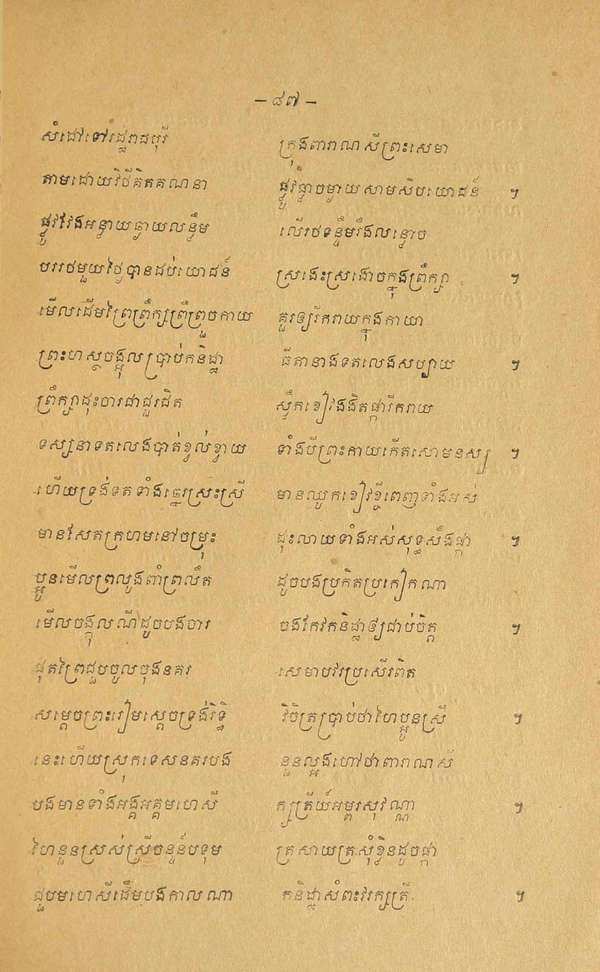 – ៨៧ –
សំដៅទៅរដ្ឋរាជបុរី ក្រុងពារាណសីព្រះសេមា
តាមដោយវិថីគិតគណនា ផ្លូវឆ្ងាចម្ងាយសាមសិបយោជន៍ ៗ
ផ្លូវវែងអន្លាយឆ្ងាយលន្ទឹម លើរថទន្ទឹមរឹងលន្លោច
បររថមួយថ្ងៃបានដប់យោជន៍ ស្រងេះស្រងោចក្នុងព្រឹក្សា ៗ
មើលដើមព្រៃព្រឹក្សព្រឹព្រួចកាយ គួរឲ្យរីករាយក្នុងកាយា
ព្រះហស្ថចង្អុលប្រាប់កនិដ្ឋា ធីតានាងទតលេងសប្បាយ ៗ
ព្រឹក្សាដុះចារជាជួរជិត ស្លឹកខៀវងងិតផ្ការីករាយ
ទស្សនាទតលេងបាត់ខ្វល់ខ្វាយ ទាំងបីព្រះកាយកើតសោមនស្ស ៗ
ហើយទ្រង់ទតទាំងឆ្នេរស្រះស្រី មានឈូកខៀវខ្ចីពេញទាំងអស់
មានសែតក្រហមនៅចម្រុះ ដុះលាយទាំងអស់សុទ្ធសឹងផ្កា ៗ
ប្អូនមើលព្រលូងពាំព្រលឹត ដូចបងប្រកិតប្រកៀកណា
មើលចង្កុលណីដូចបងចារ ចងកែវកនិដ្ឋាឲ្យជាប់ចិត្ត ៗ
ផុតព្រៃជួបចូលចុងនគរ សេមាបវរប្រសើរពិត
សម្តេចព្រះរៀមស្តេចទ្រង់រិទ្ធិ វិចិត្រប្រាប់ថាហៃប្អូនស្រី ៗ
នេះហើយស្រុកទេសនគរបង នួនល្អងហៅថាពារាណសី
បងមានទាំងអង្គអគ្គមហេសី ក្សត្រីយ៍អម្ពរសុវណ្ណា ៗ
ហៃនួនស្រស់ស្រីចនួន៍បទុម ត្រសាយត្រសុំខ្ចិនដូចផ្កា
ជួបមហេសីដើមបងកាលណា កនិដ្ឋាសំពះវរក្សត្រី ៗ